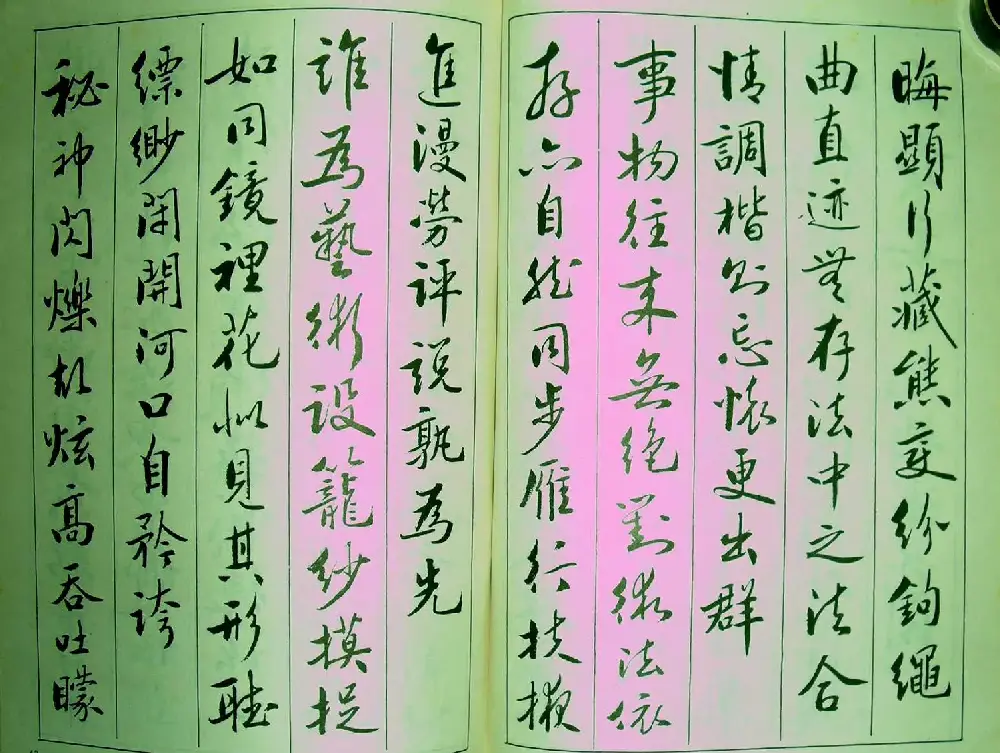 晦顯行藏態变紛鉤繩
曲直迹無存法中之法合
情調楷则忘懷更出群
事物往来無絶對術法依
存亦自然同步雁行扶掖
進漫勞評説孰為先
誰為藝術設籠紗摸捉
如同鏡裡花似見其形聴
縹緲閑開河口自矜誇
秘神閃爍故炫高吞吐矇